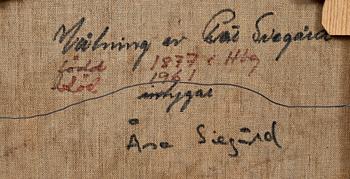 Målning av Pär Siegård
född 1877 i Hbg
död 1961
intygar
Åsa Siegård